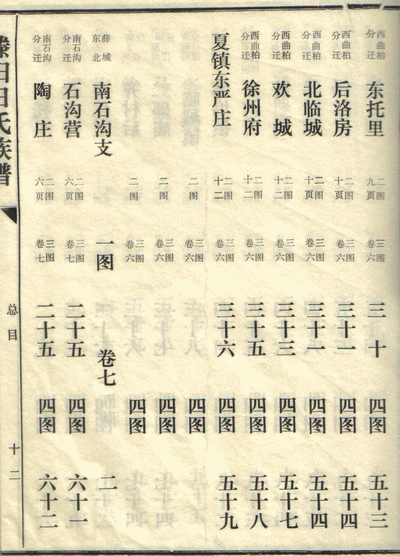 西曲柏分迁 东托里 二图九页 三图卷六 三十 四图 五十三
西曲柏分迁 后洛房 二图十页 三图卷六 三十一 四图 五十四
西曲柏分迁 北临城 二图十页 三图卷六 三十一 四图 五十四
西曲柏分迁 欢城 二图十二 三图卷六 三十三 四图 五十七
西曲柏分迁 徐州府 二图十二 三图卷六 三十五 四图 五十八
夏镇东严庄 二图十二 三图卷六 三十六 四图 五十九
二图 三图卷六 四图
二图 三图卷六 四图
二图 三图卷六 四图
薛城东北 南石沟支 一图 卷七 二
南石沟分迁 石沟营 二图六页 三图卷七 二十五 四图 六十一
南石沟分迁 陶庄 二图六页 三图卷七 二十五 四图 六十二
滕阳田氏族谱
总目
十二